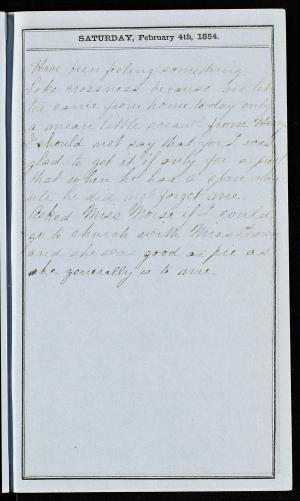 SATURSDAY, February 4th, 1854.
Have been feeling something
like crossness because no let
ter came from home to day only
a mean little scrawl from
I should not say that for I was
glad to get it if only for a
that when he had a spare min
ute he did not forget me.
Asked Miss Morse if I could
go to church with Miss
and she was good as pie as
she generally is to me.